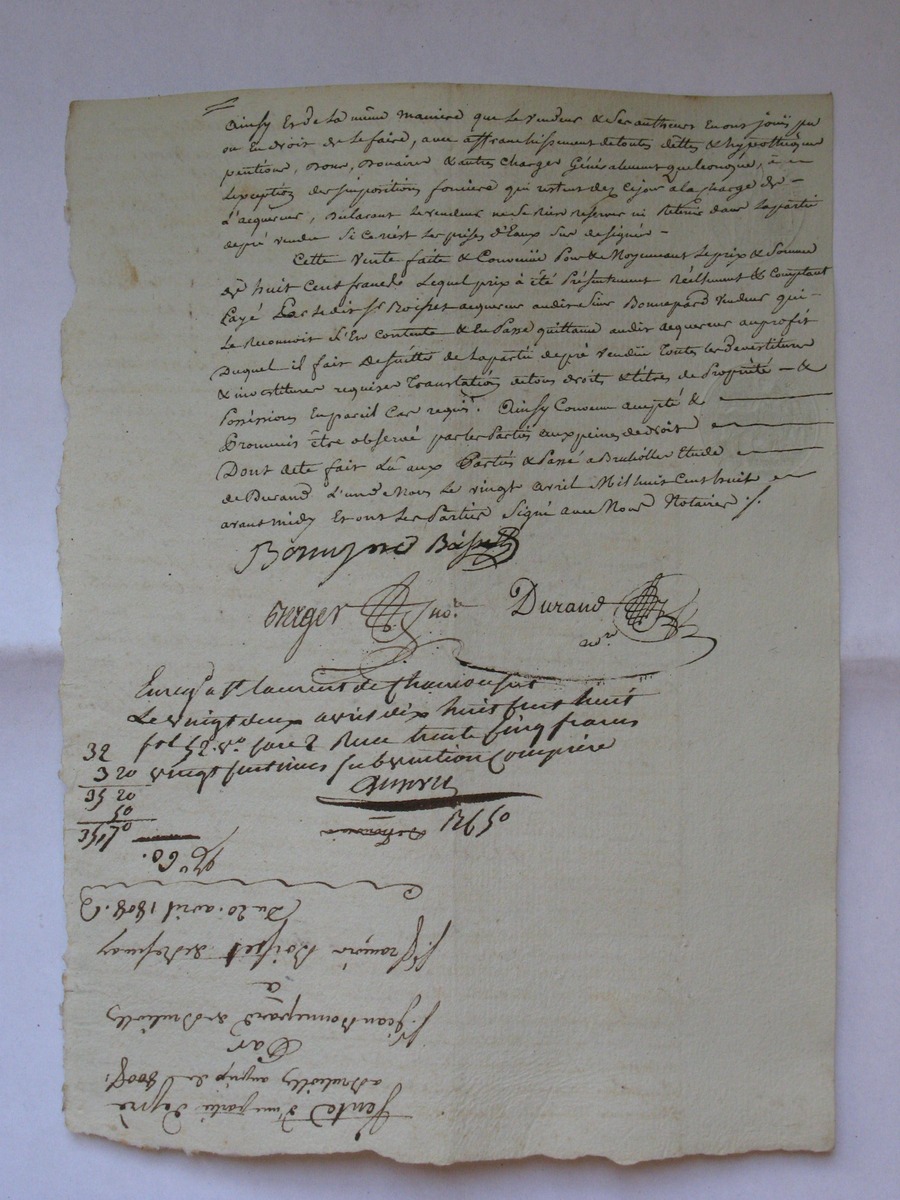 Ainsy Et de la même maniere que Le vendeur & Ses autheurs En ont jouis peu
ou En droit de le faire, avec affranchissement de toutes dêttes & hypothèque
pentions, Doux, Douaires & autres charges Généralement quelconque, à
L'exception des impositions foncieres qui restent dez Ce jour a la charge de
L'acquereur, Déclarant Le vendeur ne Se Rien reserver ni Retenir dans la partie
de pré vendu Si Ce n'est Les prises d'Eaux Sus designés
Cette Vente faite & Convenüe Pour & Moyennant Le prix & Somme
de huit Cent francs Lequel prix à été Présentement Réellement & Comptant
Payé Par Ledit Sr Boisset acquereur audit Sieur Bonnepard Vendeur qui
Le Reconnoit S'En Contente & En Passe quittance audit acquereur au profit
Duquel il fait De Suitte de la partie de pré Vendüe Toutes les Devestitures
& investitures requises Translation de tous droits & titres de Propriété &
Possessions En pareil Cas requis. Ainsy Convenu accepté &
Promis être observé par les Parties aux peines de droit
Dont acte fait Lû aux Parties & Passé a Brulliolles Etude
de Durand L'un de Nous Le vingt avril Mil huit Cent huit
avant midy Et ont Les Parties Signé avec Nous Notaires
Boisset
Verger no.re Durand
no.re
Enreg. a St Laurent de Chamousset
Le vingt deux avril dix huit Cent huit
fol 52 Vo Case 2 Reçu trente Cinq francs
vingt Centimes Subvention Comprise
32
3 20
35 20
50
No 60.
Du 20. avril 1808.
Sr François Boisset
à
Sr Jean Bonnepard de Brulliolles
Par
a Brulliolles au prix de 800 f.
Vente d'une partie de pré